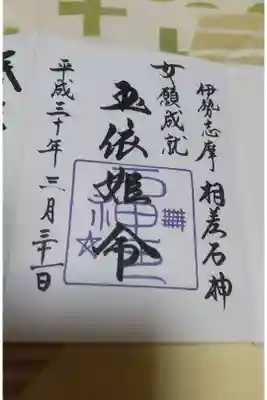 伊勢志摩 相差石神
女願成就
玉依姫命
平成三十年三月三十一日